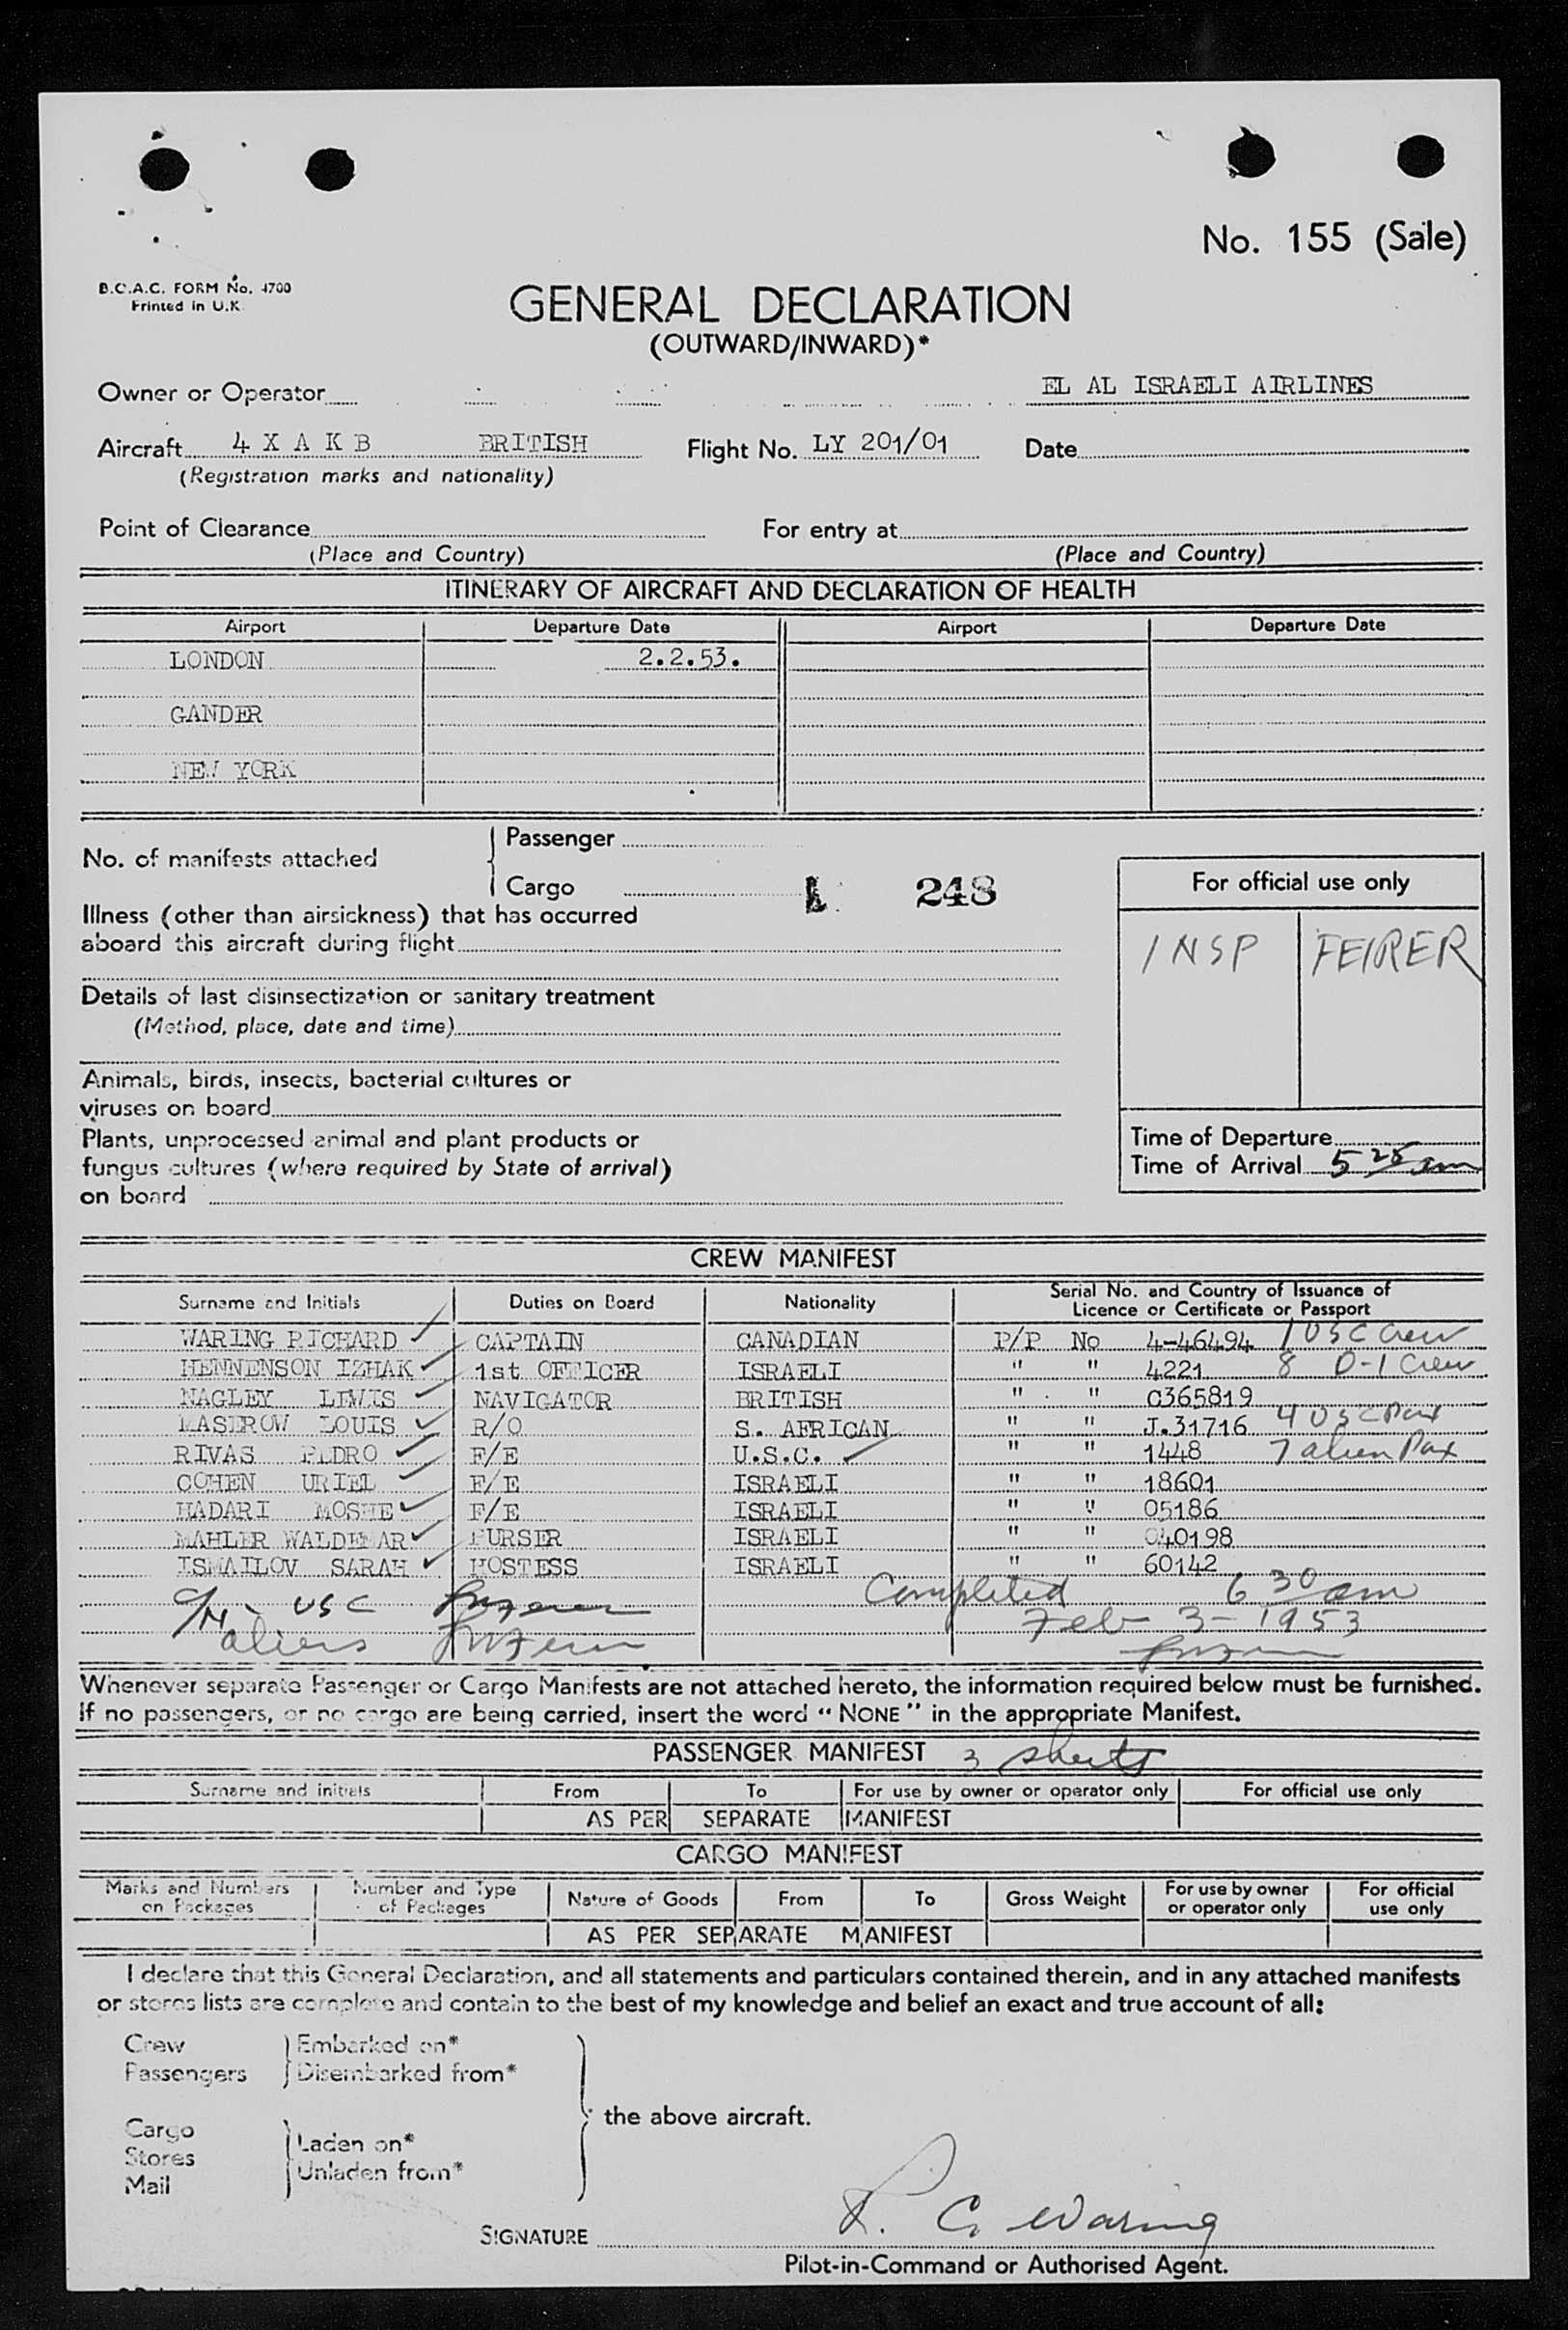 No. 155 (Sale)
B.O.A.C. FORM No. 4700
Printed in U.K.
GENERAL DECLARATION
(OUTWARD/INWARD)*
Owner or Operator EL AL ISRAELI AIRLINES
Aircraft 4 X A K B BRITISH Flight No. LY 201/01 Date
(Registration marks and nationality)
Point of Clearance For entry at
(Place and Country) (Place and Country)
ITINERARY OF AIRCRAFT AND DECLARATION OF HEALTH
Airport Departure Date Airport Departure Date
LONDON 2.2.53.
GANDER
NEW YORK
No. of manifests attached { Passenger
Cargo 248
Illness (other than airsickness) that has occurred
aboard this aircraft during flight
Details of last disinsectization or sanitary treatment
(Method, place, date and time)
Animals, birds, insects, bacterial cultures or
viruses on board
Plants, unprocessed animal and plant products or
fungus cultures (where required by State of arrival)
on board
For official use only
INSP FEIRER
Time of Departure
Time of Arrival 5 25 am
CREW MANIFEST
Surname and Initials Duties on Board Nationality Serial No. and Country of Issuance of
Licence or Certificate or Passport
WARING RICHARD CAPTAIN CANADIAN P/P No 4-46494 1 USC Crew
HENNENSON IZHAK 1st OFFICER ISRAELI " " 4221 8 D-1 Crew
NAGLEY LEWIS NAVIGATOR BRITISH " " C365819
MASTROW LOUIS R/O S. AFRICAN " " J.31716 4 USC Pax
RIVAS PEDRO F/E U.S.C. " " 1448 7 alien Pax
COHEN URIEL F/E ISRAELI " " 18601
HADARI MOSHE F/E ISRAELI " " 05186
MAHLER WALDEMAR PURSER ISRAELI " " 040198
ISMAILOV SARAH HOSTESS ISRAELI " " 60142
USC Completed 6 30 am
aliens Feb 3 - 1953
Whenever separate Passenger or Cargo Manifests are not attached hereto, the information required below must be furnished.
If no passengers, or no cargo are being carried, insert the word "NONE" in the appropriate Manifest.
PASSENGER MANIFEST 3 sheets
Surname and initials From To For use by owner or operator only For official use only
AS PER SEPARATE MANIFEST
CARGO MANIFEST
Marks and Numbers on Packages Number and Type of Packages Nature of Goods From To Gross Weight For use by owner or operator only For official use only
AS PER SEPARATE MANIFEST
I declare that this General Declaration, and all statements and particulars contained therein, and in any attached manifests
or stores lists are complete and contain to the best of my knowledge and belief an exact and true account of all:
Crew Embarked on*
Passengers Disembarked from*
the above aircraft.
Cargo
Stores Laden on*
Mail Unladen from*
SIGNATURE R. C. Waring
Pilot-in-Command or Authorised Agent.